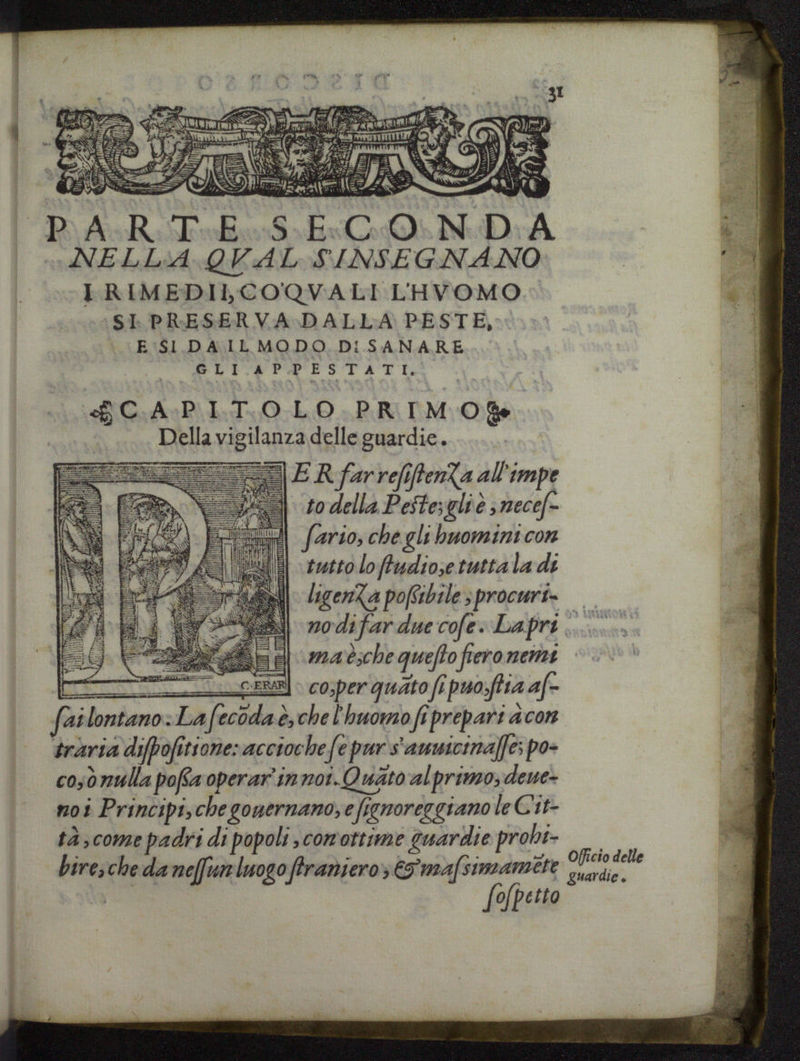 31
PARTE SECONDA
NELLA QVAL S'INSEGNANO
I RIMEDII, CO'QVALI L'HVOMO
SI PRESERVA DALLA PESTE,
E SI DA IL MODO DI SANARE
GLI APPESTATI.
CAPITOLO PRIMO
Della vigilanza delle guardie.
PER far resistenza all'impe
to della Peste; gli è, neces-
sario, che gli huomini con
tutto lo studio, e tutta la di
ligenza possibile, procuri-
no di far due cose. La pri
ma è, che questo fiero nemi
co, per quãto si puo, stia as-
sai lontano. La secõda è, che l'huomo si prepari à con
traria dispositione: accioche se pur s'auuicinasse; po-
co, ò nulla possa operar' in noi. Quãto al primo, deue-
no i Principi, che gouernano, e signoreggiano le Cit-
tà, come padri di popoli, con ottime guardie prohi-
bire, che da nessun luogo straniero, & massimamẽte
Officio delle
guardie.
sospetto